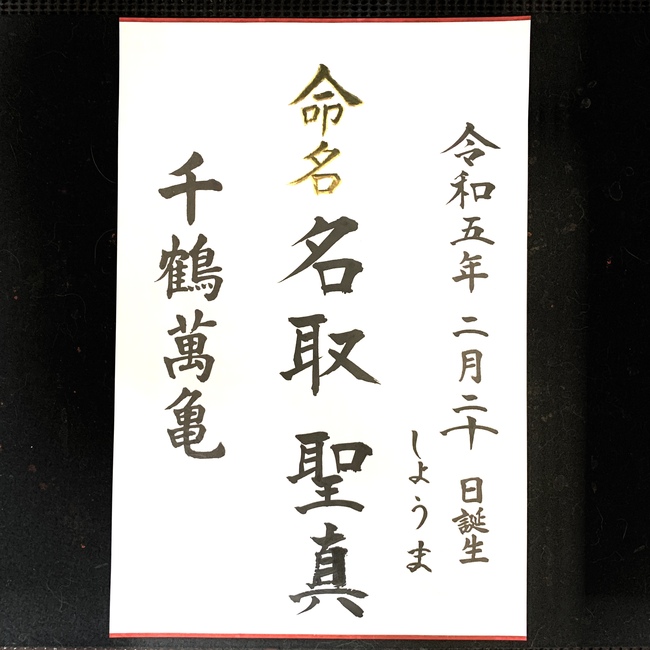 令和五年 二月二十 日誕生
しょうま
命名 名取 聖真
千鶴萬亀